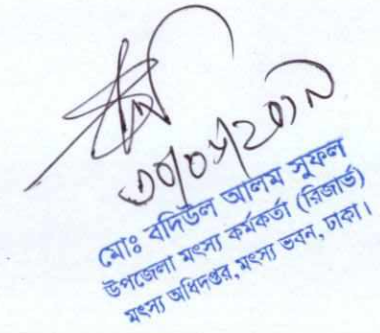 মোঃ বদিউল আলম সুফল
উপজেলা মৎস্য কর্মকর্তা (রিজার্ভ)
মৎস্য অধিদপ্তর, মৎস্য ভবন, ঢাকা।